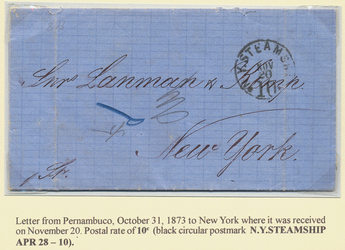 N.Y. STEAMSHIP
NOV
20
10
Snrs Lanman & Kemp
New York.
p Str.
Letter from Pernambuco, October 31, 1873 to New York where it was received
on November 20. Postal rate of 10¢ (black circular postmark N.Y.STEAMSHIP
APR 28 – 10).